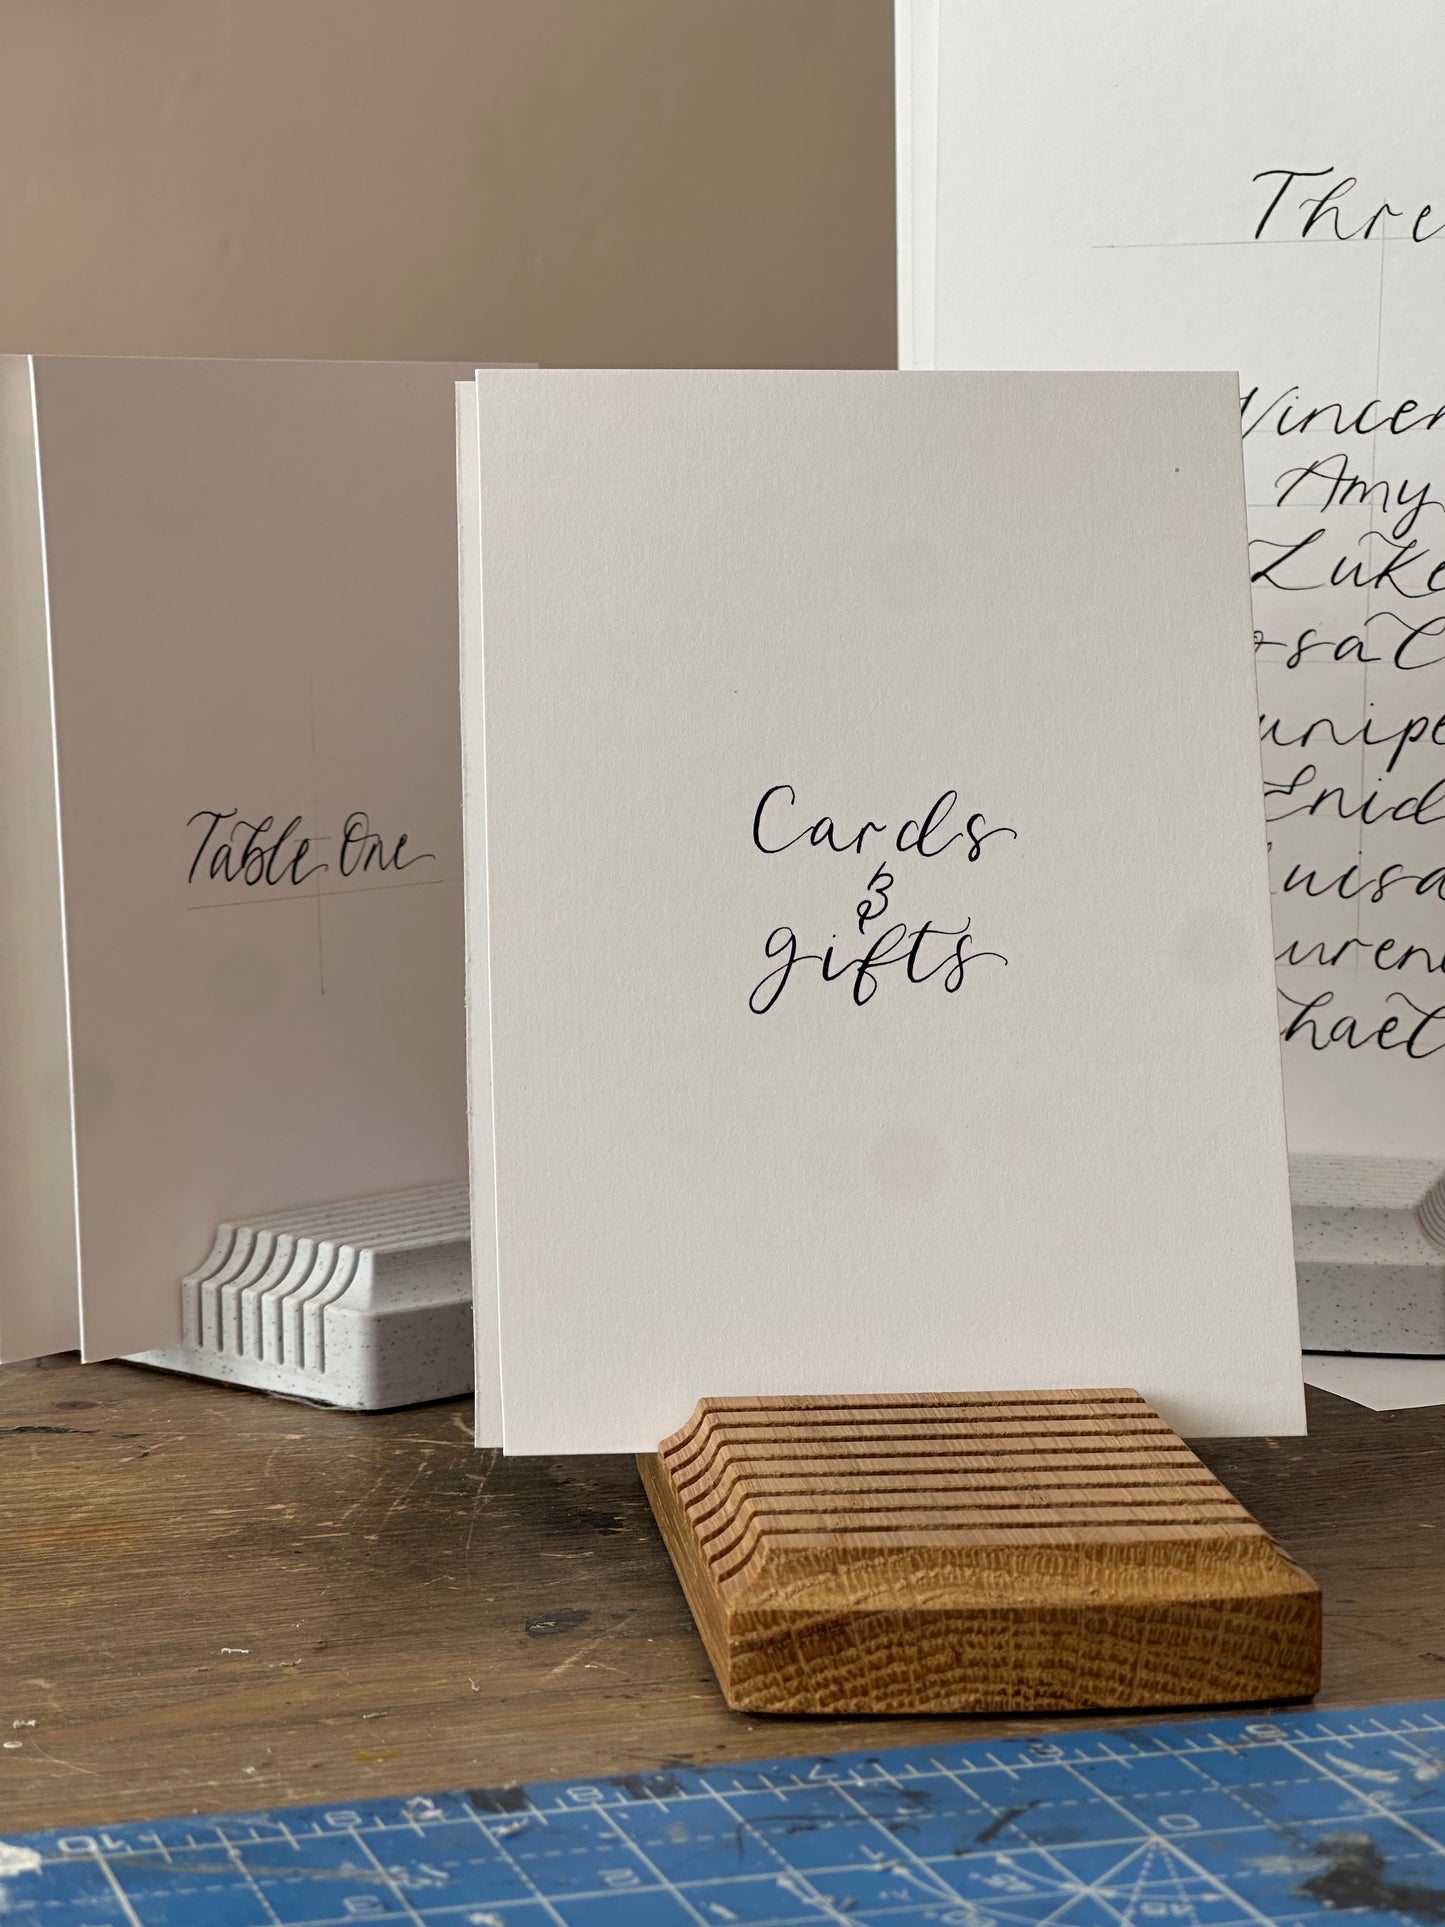 Table One
Cards
&
gifts
Thre
Vincen
Amy
Luke
osa C
unipe
Enid
uisa
uren
hael
10 9 8 7 6 5
3 2 1 0